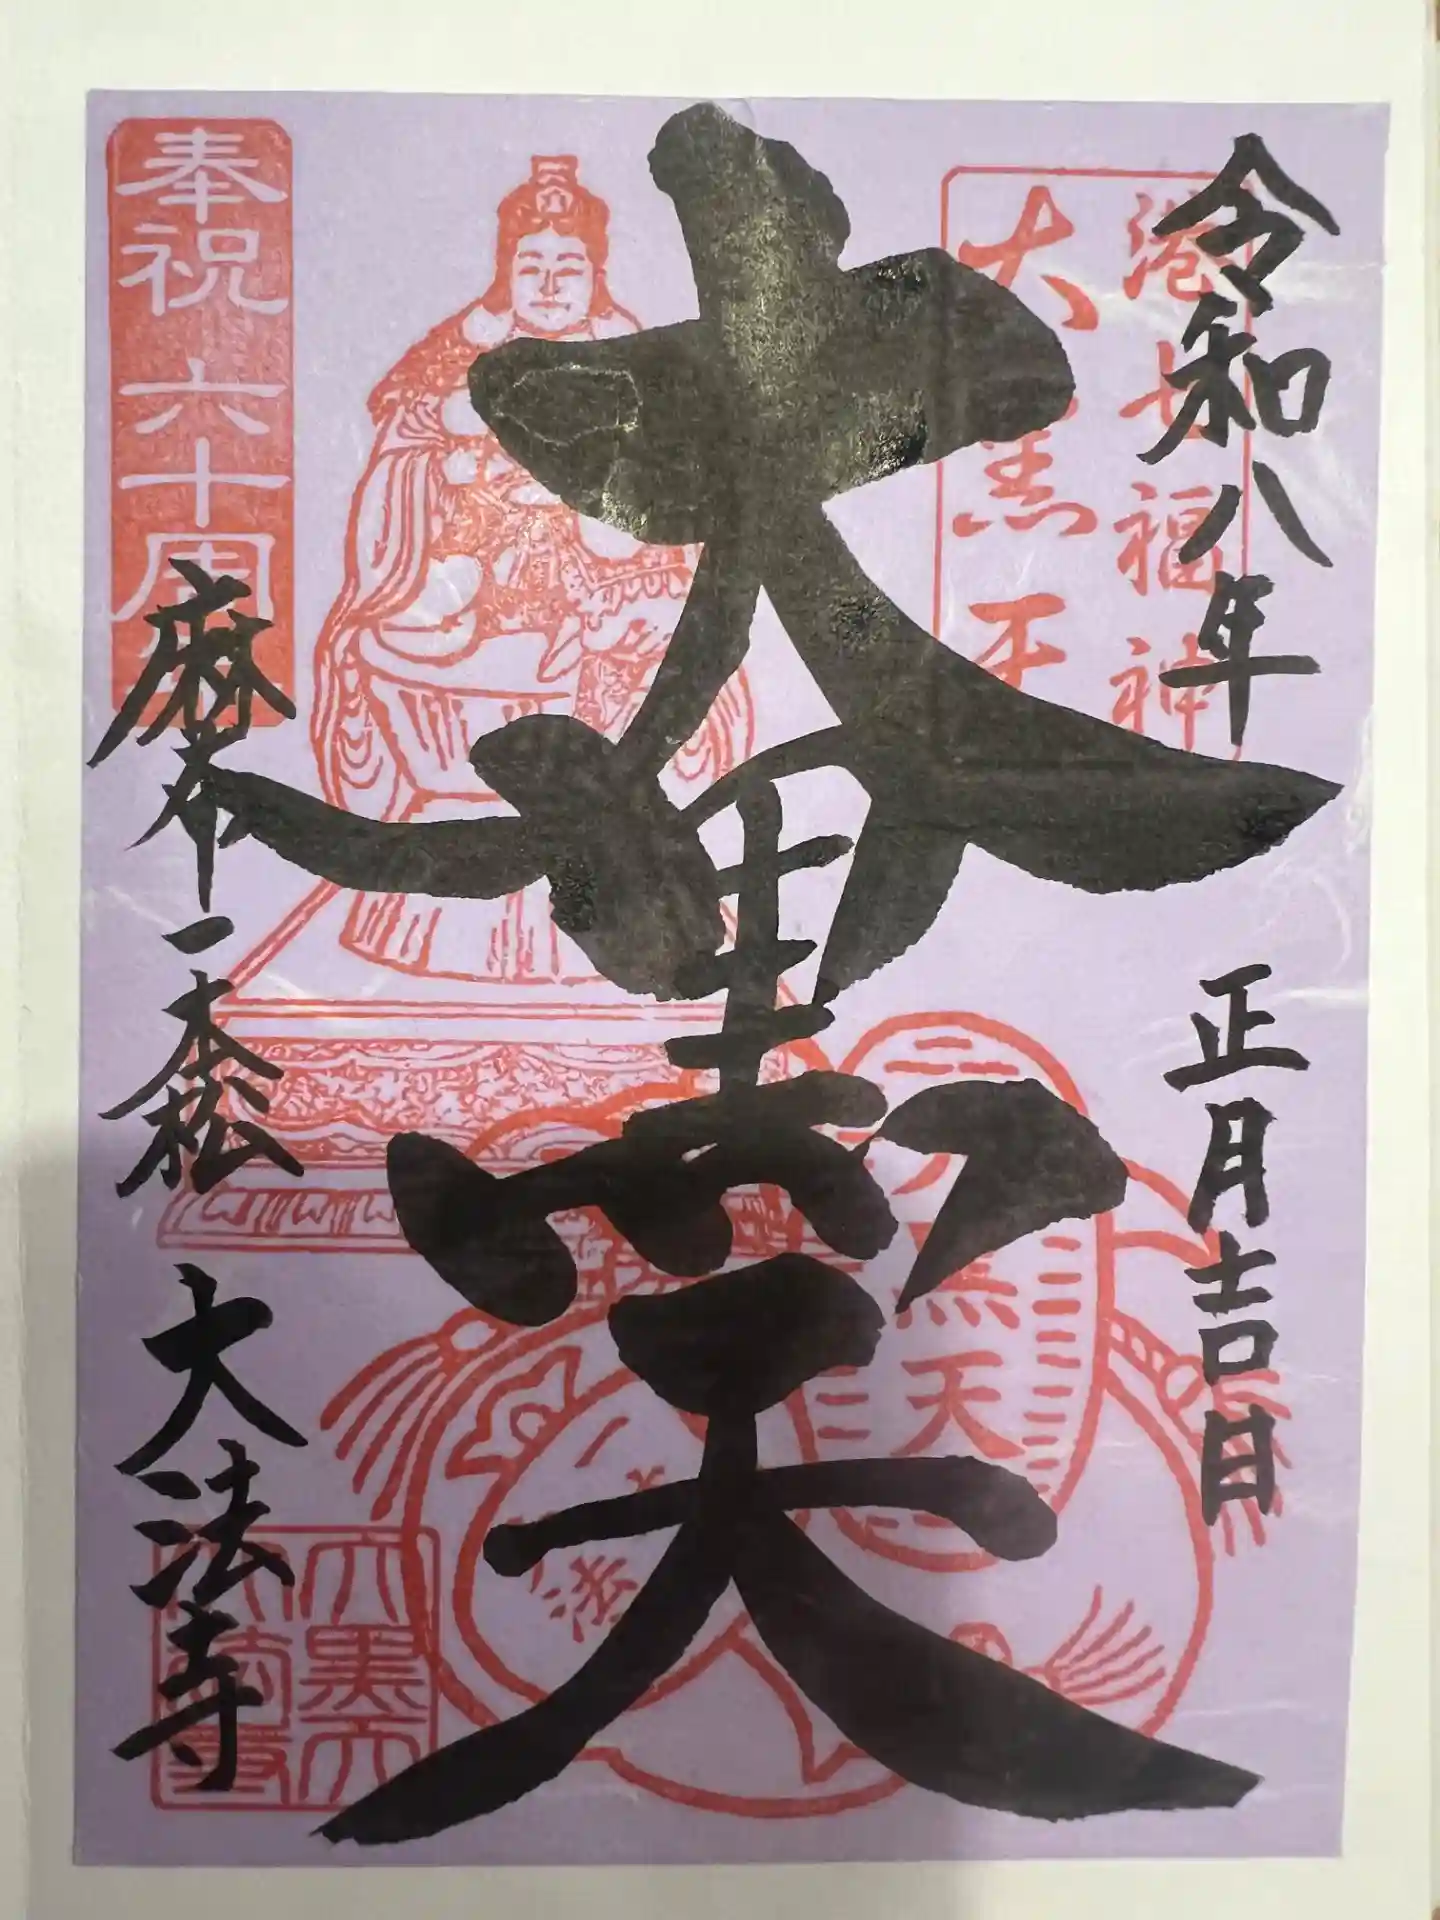 令和八年 正月吉日
港七福神
大黒天
大黒天
奉祝 六十周
麻布一本松 大法寺
黒天
法
大黒天